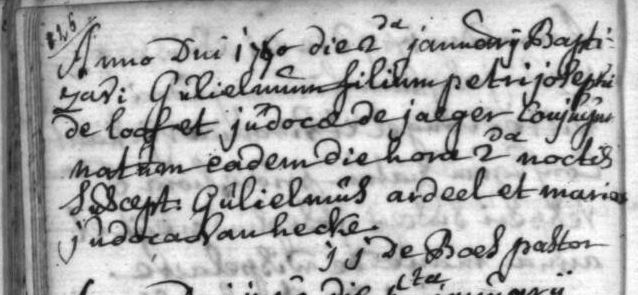 126
Anno Dni 1760 die 2da januarij Bapti-
zavi Gulielmum filium petri josephi
de loof et judocæ de jaeger Conjugum
natum eadem die hora 2da noctis
Suscept: Gulielmus ardeel et maria
judoca Vanhecke
j j De Boes pastor